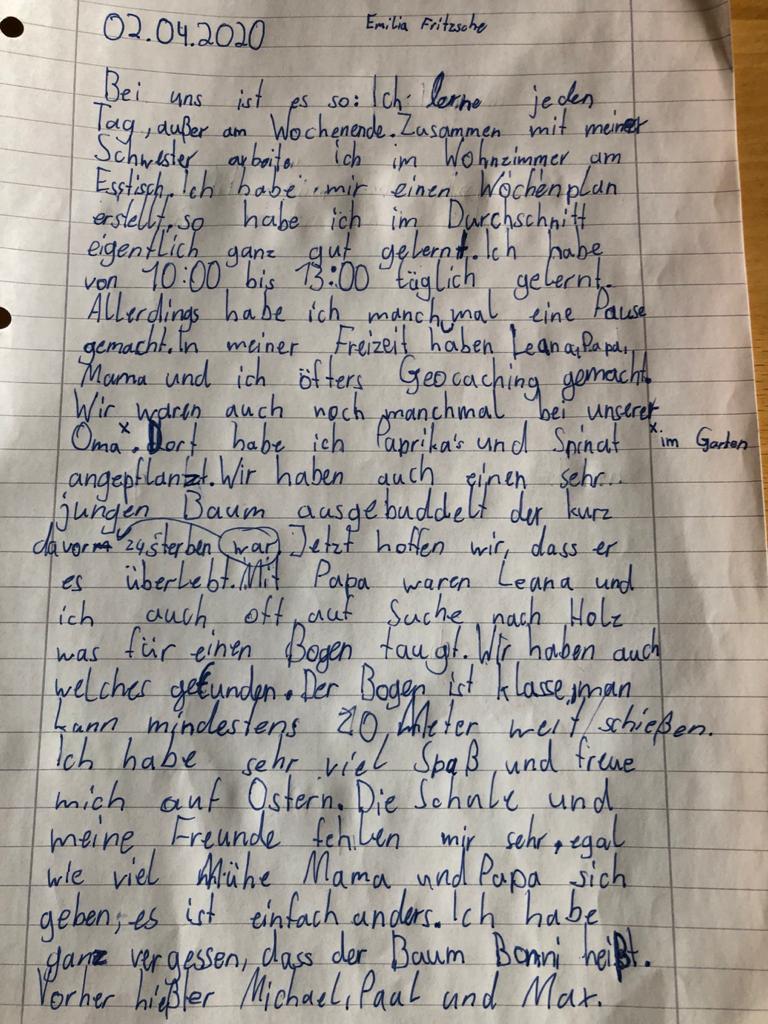 02.04.2020
Emilia Fritzsche
Bei uns ist es so: Ich lerne jeden
Tag, außer am Wochenende. Zusammen mit meiner
Schwester arbeite ich im Wohnzimmer am
Esstisch. Ich habe mir einen Wochenplan
erstellt, so habe ich im Durchschnitt
eigentlich ganz gut gelernt. Ich habe
von 10:00 bis 13:00 täglich gelernt.
Allerdings habe ich manchmal eine Pause
gemacht. In meiner Freizeit haben Leana, Papa,
Mama und ich öfters Geocaching gemacht.
Wir waren auch noch manchmal bei unserer
Oma x. Dort habe ich Paprika's und Spinat
x im Garten
angepflanzt. Wir haben auch einen sehr
jungen Baum ausgebuddelt der kurz
davor zu sterben war. Jetzt hoffen wir, dass er
es überlebt. Mit Papa waren Leana und
ich auch oft auf Suche nach Holz
was für einen Bogen taugt. Wir haben auch
welches gefunden. Der Bogen ist klasse, man
kann mindestens 20 Meter weit schießen.
Ich habe sehr viel Spaß und freue
mich auf Ostern. Die Schule und
meine Freunde fehlen mir sehr, egal
wie viel Mühe Mama und Papa sich
geben, es ist einfach anders. Ich habe
ganz vergessen, dass der Baum Bonni heißt.
Vorher hießer Michael, Paul und Max.